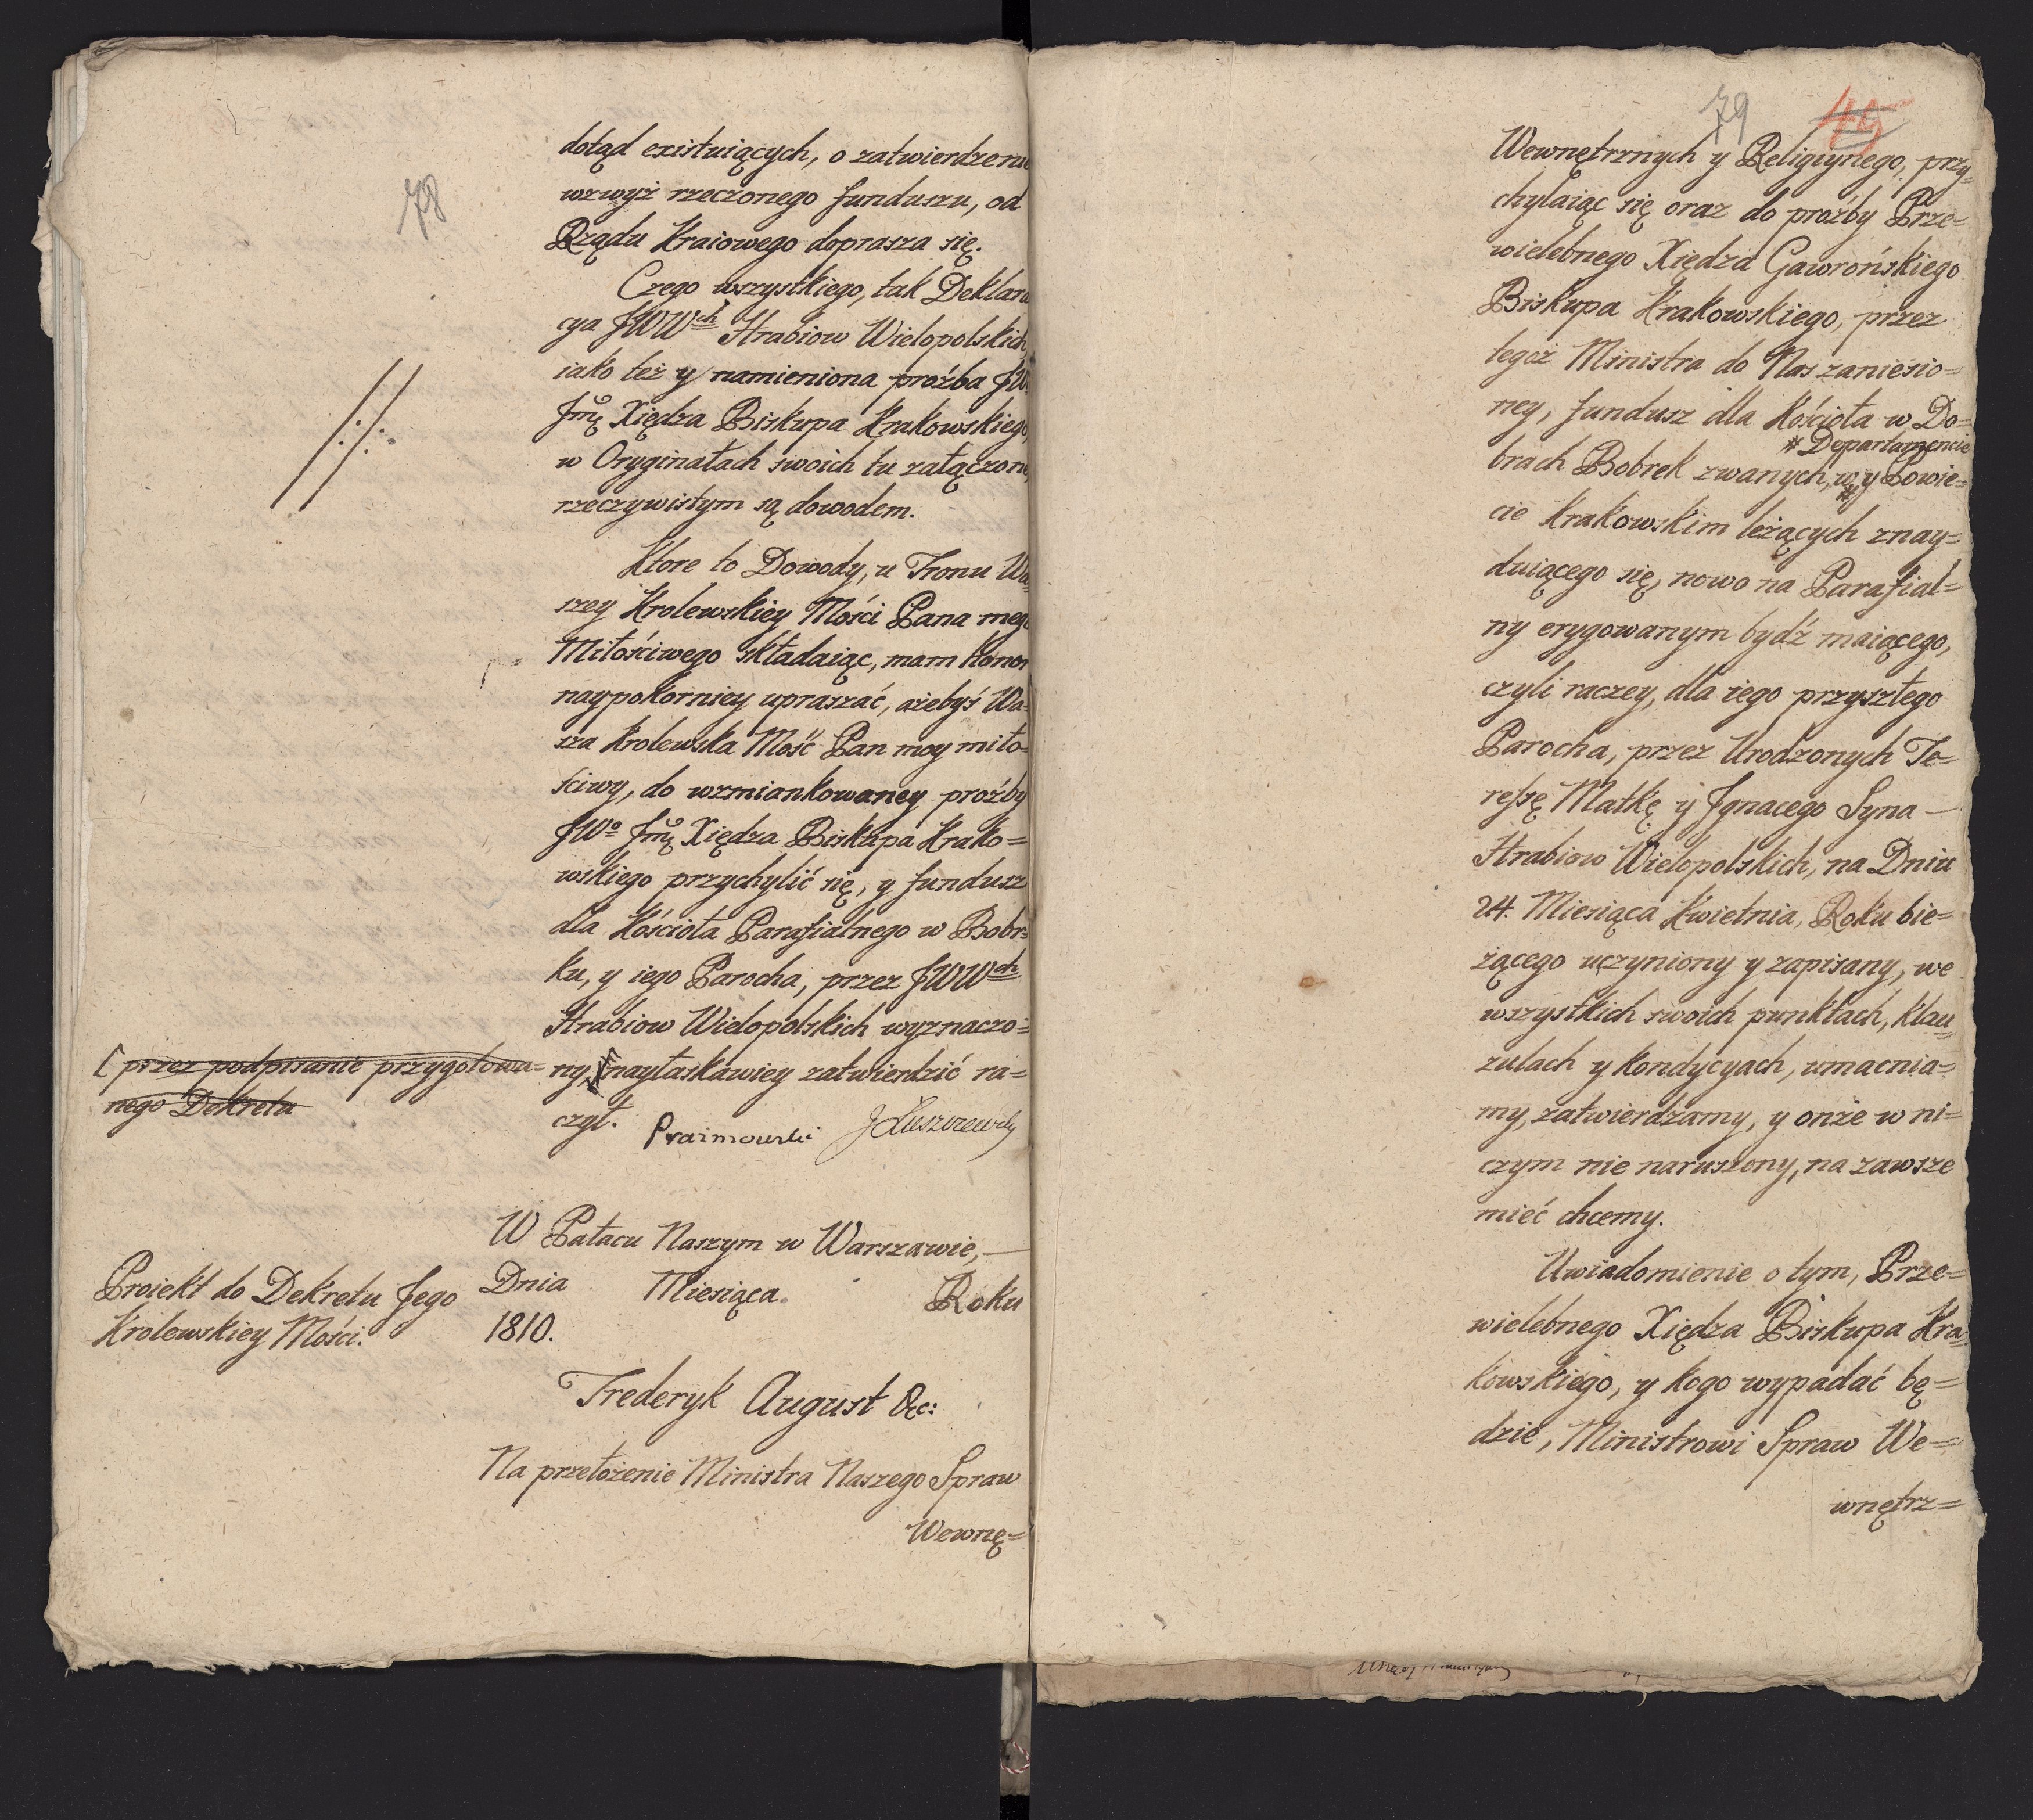 78
dotąd existuiących, o zatwierdzenie
wzwyż rzeczonego funduszu, od
Rządu Kraiowego doprasza się.
Czego wszystkiego, tak Deklara
cya JWWch Hrabiow Wielopolskich,
iako też y namieniona proźba JW
Jmę Xiędza Biskupa Krakowskiego,
w Oryginałach swoich tu załączone,
rzeczywistym są dowodem.
Ktore to Dowody, u Tronu Wa=
szey Krolewskiey Mości Pana mego
Miłościwego składaiąc, mam honor
naypokorniey upraszać, ażebyś Wa=
sza Krolewska Mość Pan moy miło=
ściwy, do wzmiankowaney proźby
JWo Jmę Xiędza Biskupa Krako=
wskiego przychylić się, y fundusz
dla Kościoła Parafialnego w Bobr=
ku, y iego Parocha, przez JWWch
Hrabiow Wielopolskich wyznaczo=
[ przez podpisanie przygotowa=
nego Dekretu
ny, [nayłaskawiey zatwierdzić ra=
czył.
Praimowski JŁuszczewski
Proiekt do Dekretu Jego
Krolewskiey Mości.
W Pałacu Naszym w Warszawie, —
Dnia Miesiąca Roku
1810.
Frederyk August &c:
Na przełożenie Ministra Naszego Spraw
Wewnę=
79 45
Wewnętrznych y Religiynego, przy=
chylaiąc się oraz do proźby Prze=
wielebnego Xiędza Gawrońskiego
Biskupa Krakowskiego, przez
tegoż Ministra do Nas zaniesio=
ney, fundusz dla Kościoła w Do=
# Departamencie
brach Bobrek zwanych, w # y Powie=
cie Krakowskim leżących znay=
duiącego się, nowo na Parafial=
ny erygowanym bydź maiącego,
czyli raczey, dla iego przyszłego
Parocha, przez Urodzonych Te=
ressę Matkę y Jgnacego Syna —
Hrabiow Wielopolskich, na Dniu
24. Miesiąca Kwietnia, Roku bie=
żącego uczyniony y zapisany, we
wszystkich swoich punktach, klau=
zulach y kondycyach, umacnia=
my, zatwierdzamy, y onże w ni=
czym nie naruszony, na zawsze
mieć chcemy.
Uwiadomienie o tym, Prze=
wielebnego Xiędza Biskupa Kra=
kowskiego, y kogo wypadać bę=
dzie, Ministrowi Spraw We=
wnętrz=